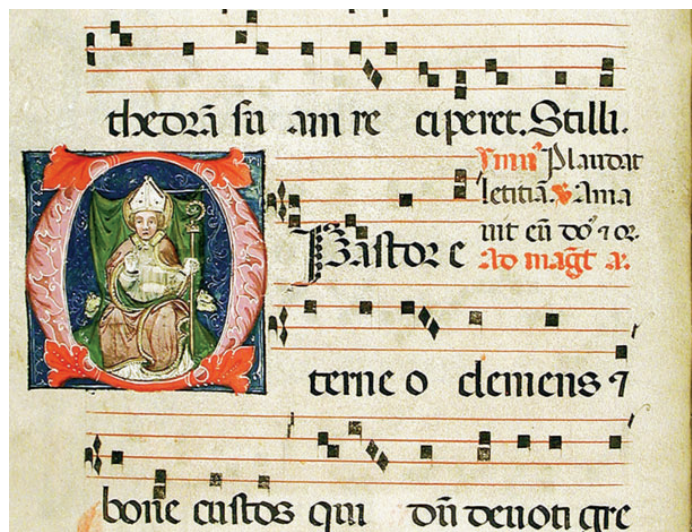 thedrā su am re ciperet. Stilli.
ymn' Plaudat
letitiā. ℣ Ama
uit eū do' ⁊ or.
Ad magt̄ a.
O Pastor e
terne o clemens ⁊
bone custos qui dū deuoti gre